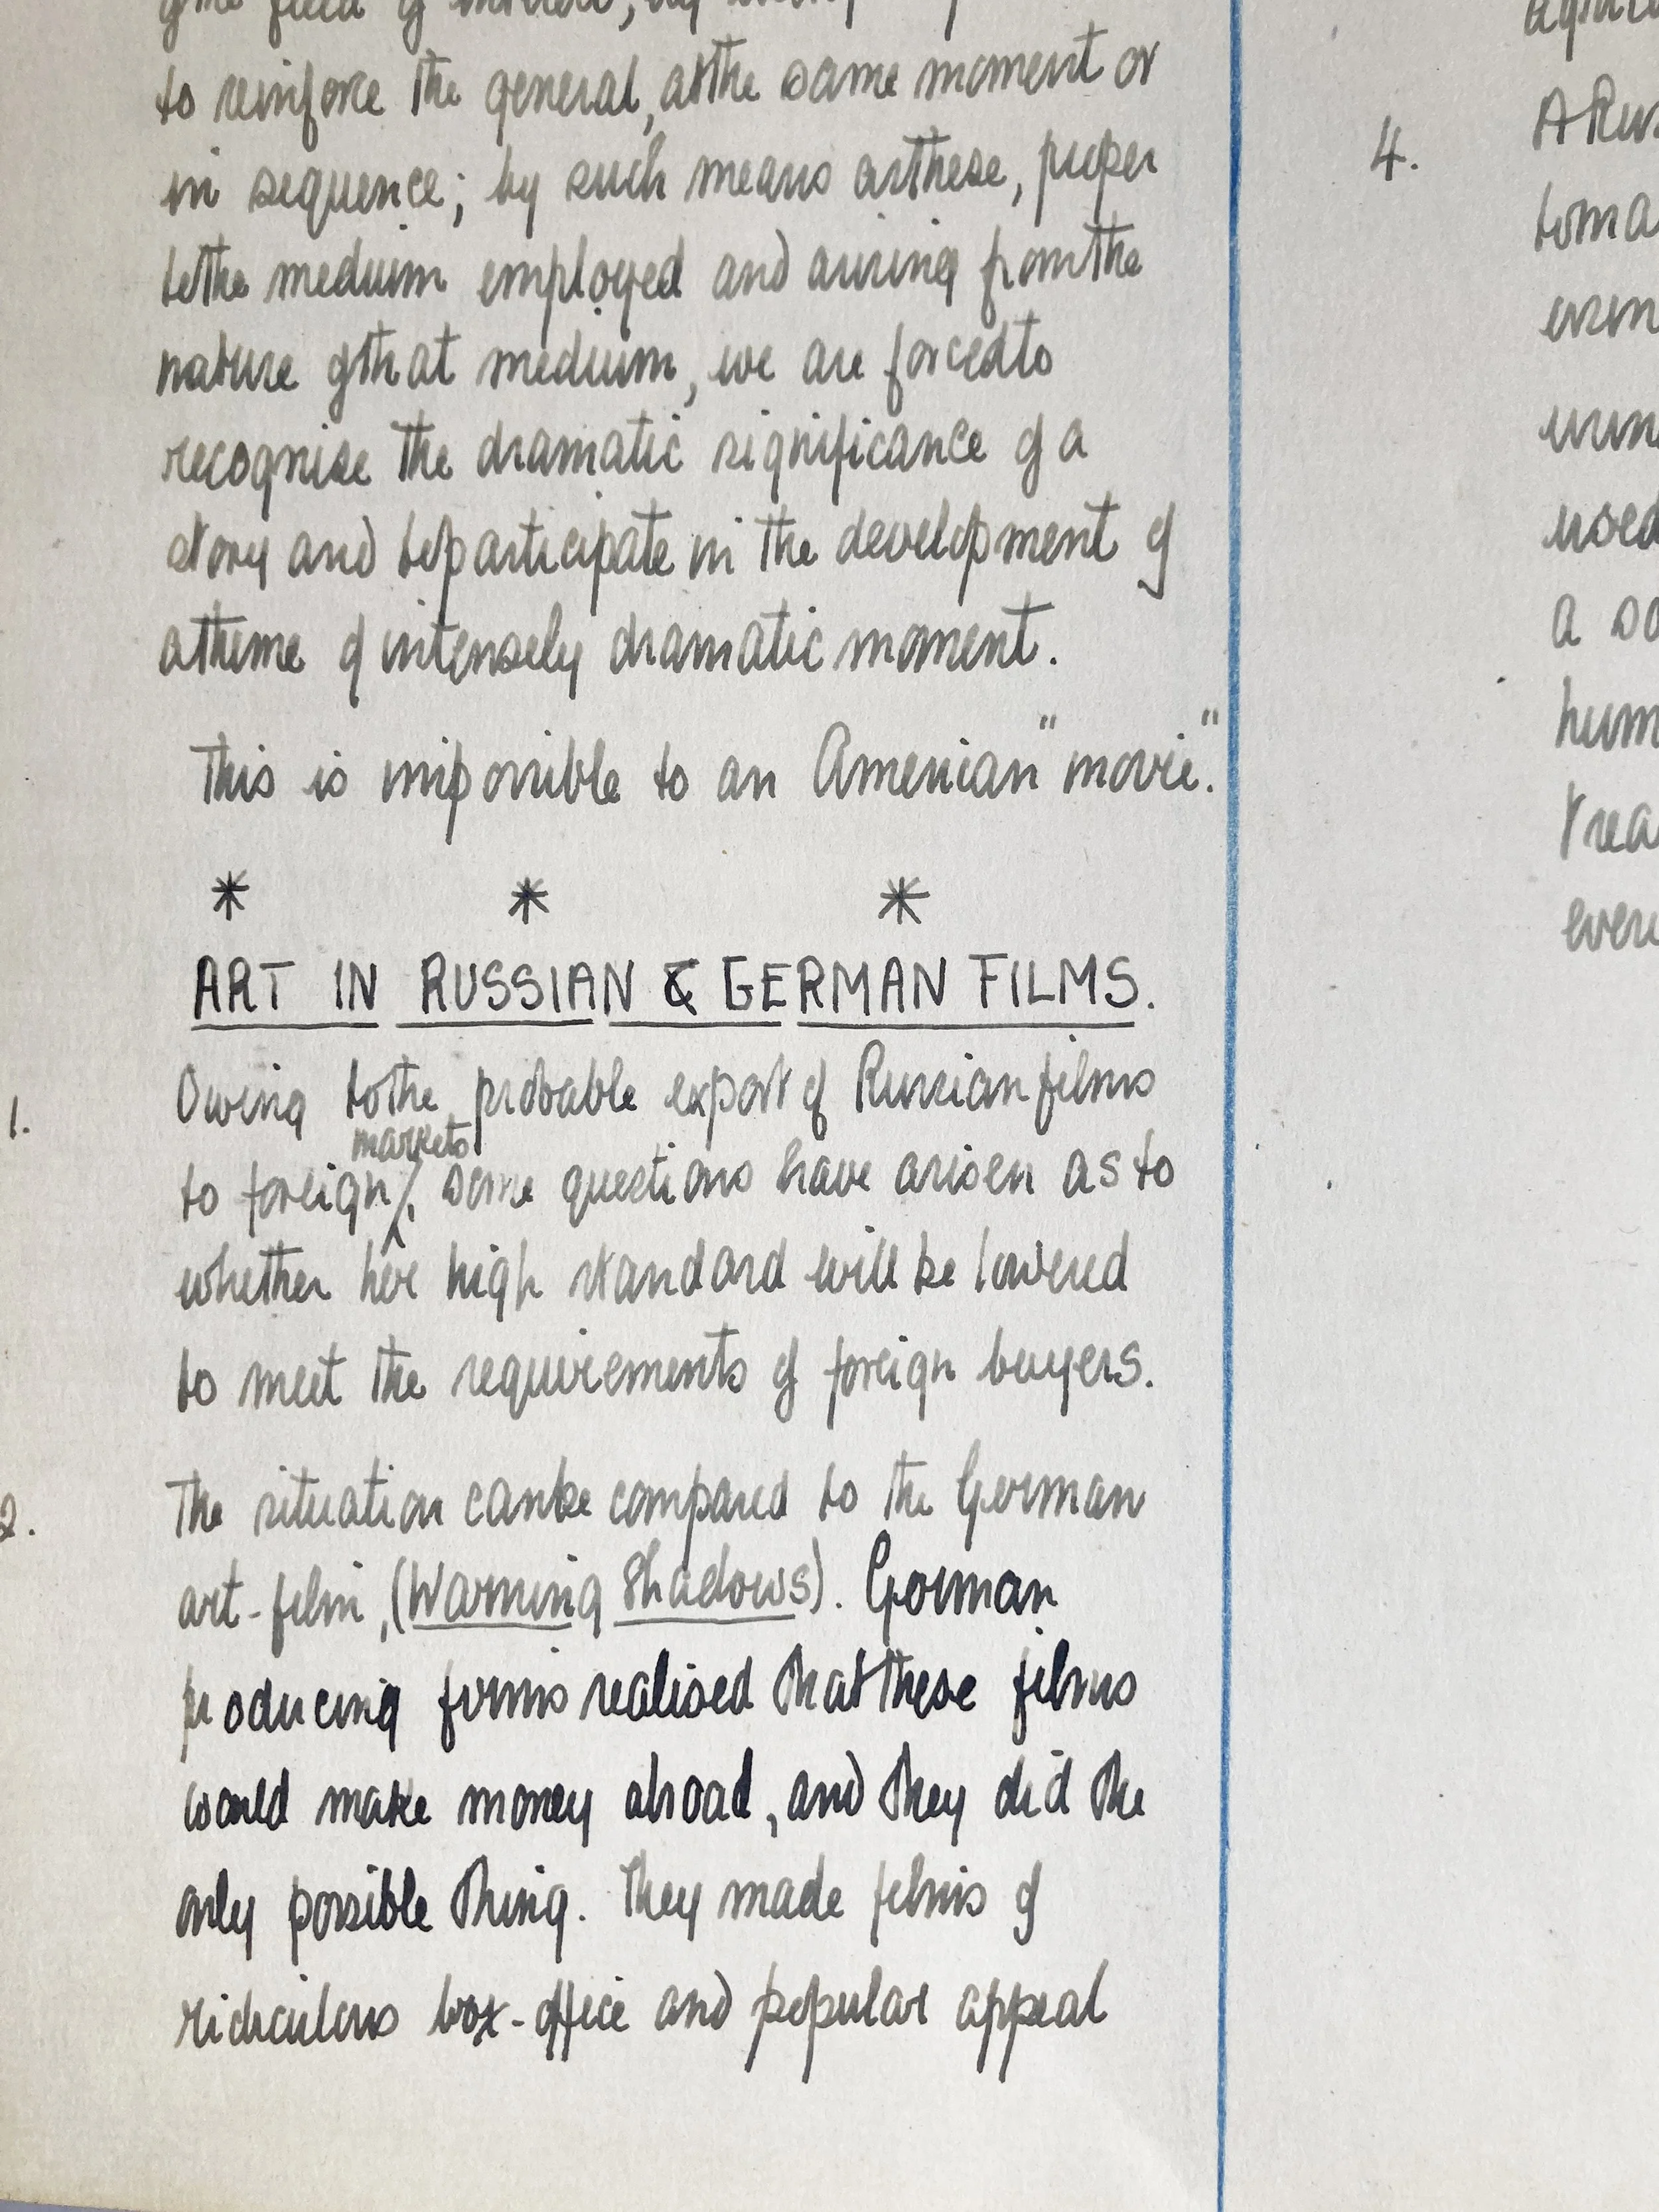 to reinforce the general, at the same moment or
in sequence; by such means as these, proper
to the medium employed and arising from the
nature of that medium, we are forced to
recognise the dramatic significance of a
story and to participate in the development of
a theme of intensely dramatic moment.
This is impossible to an American "movie".
* * *
ART IN RUSSIAN & GERMAN FILMS.
1. Owing to the probable export of Russian films
to foreign markets, some questions have arisen as to
whether her high standard will be lowered
to meet the requirements of foreign buyers.
2. The situation can be compared to the German
art-film, (Warning Shadows). German
producing firms realised that these films
would make money abroad, and they did the
only possible thing. They made films of
ridiculous box-office and popular appeal
4. A
used
a